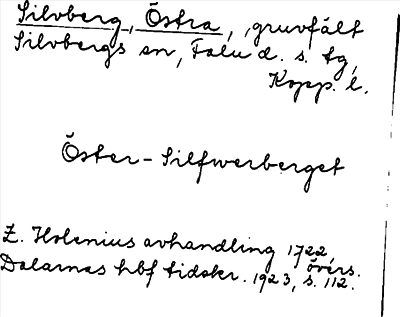 Silvberg, Östra, gruvfält
Silvbergs sn, Falu d. s. tg,
Kopp. l.
Öster-Silfwerberget
Z. Holenius avhandling 1722,
övers.
Dalarnas hbf tidskr. 1923, s. 112.